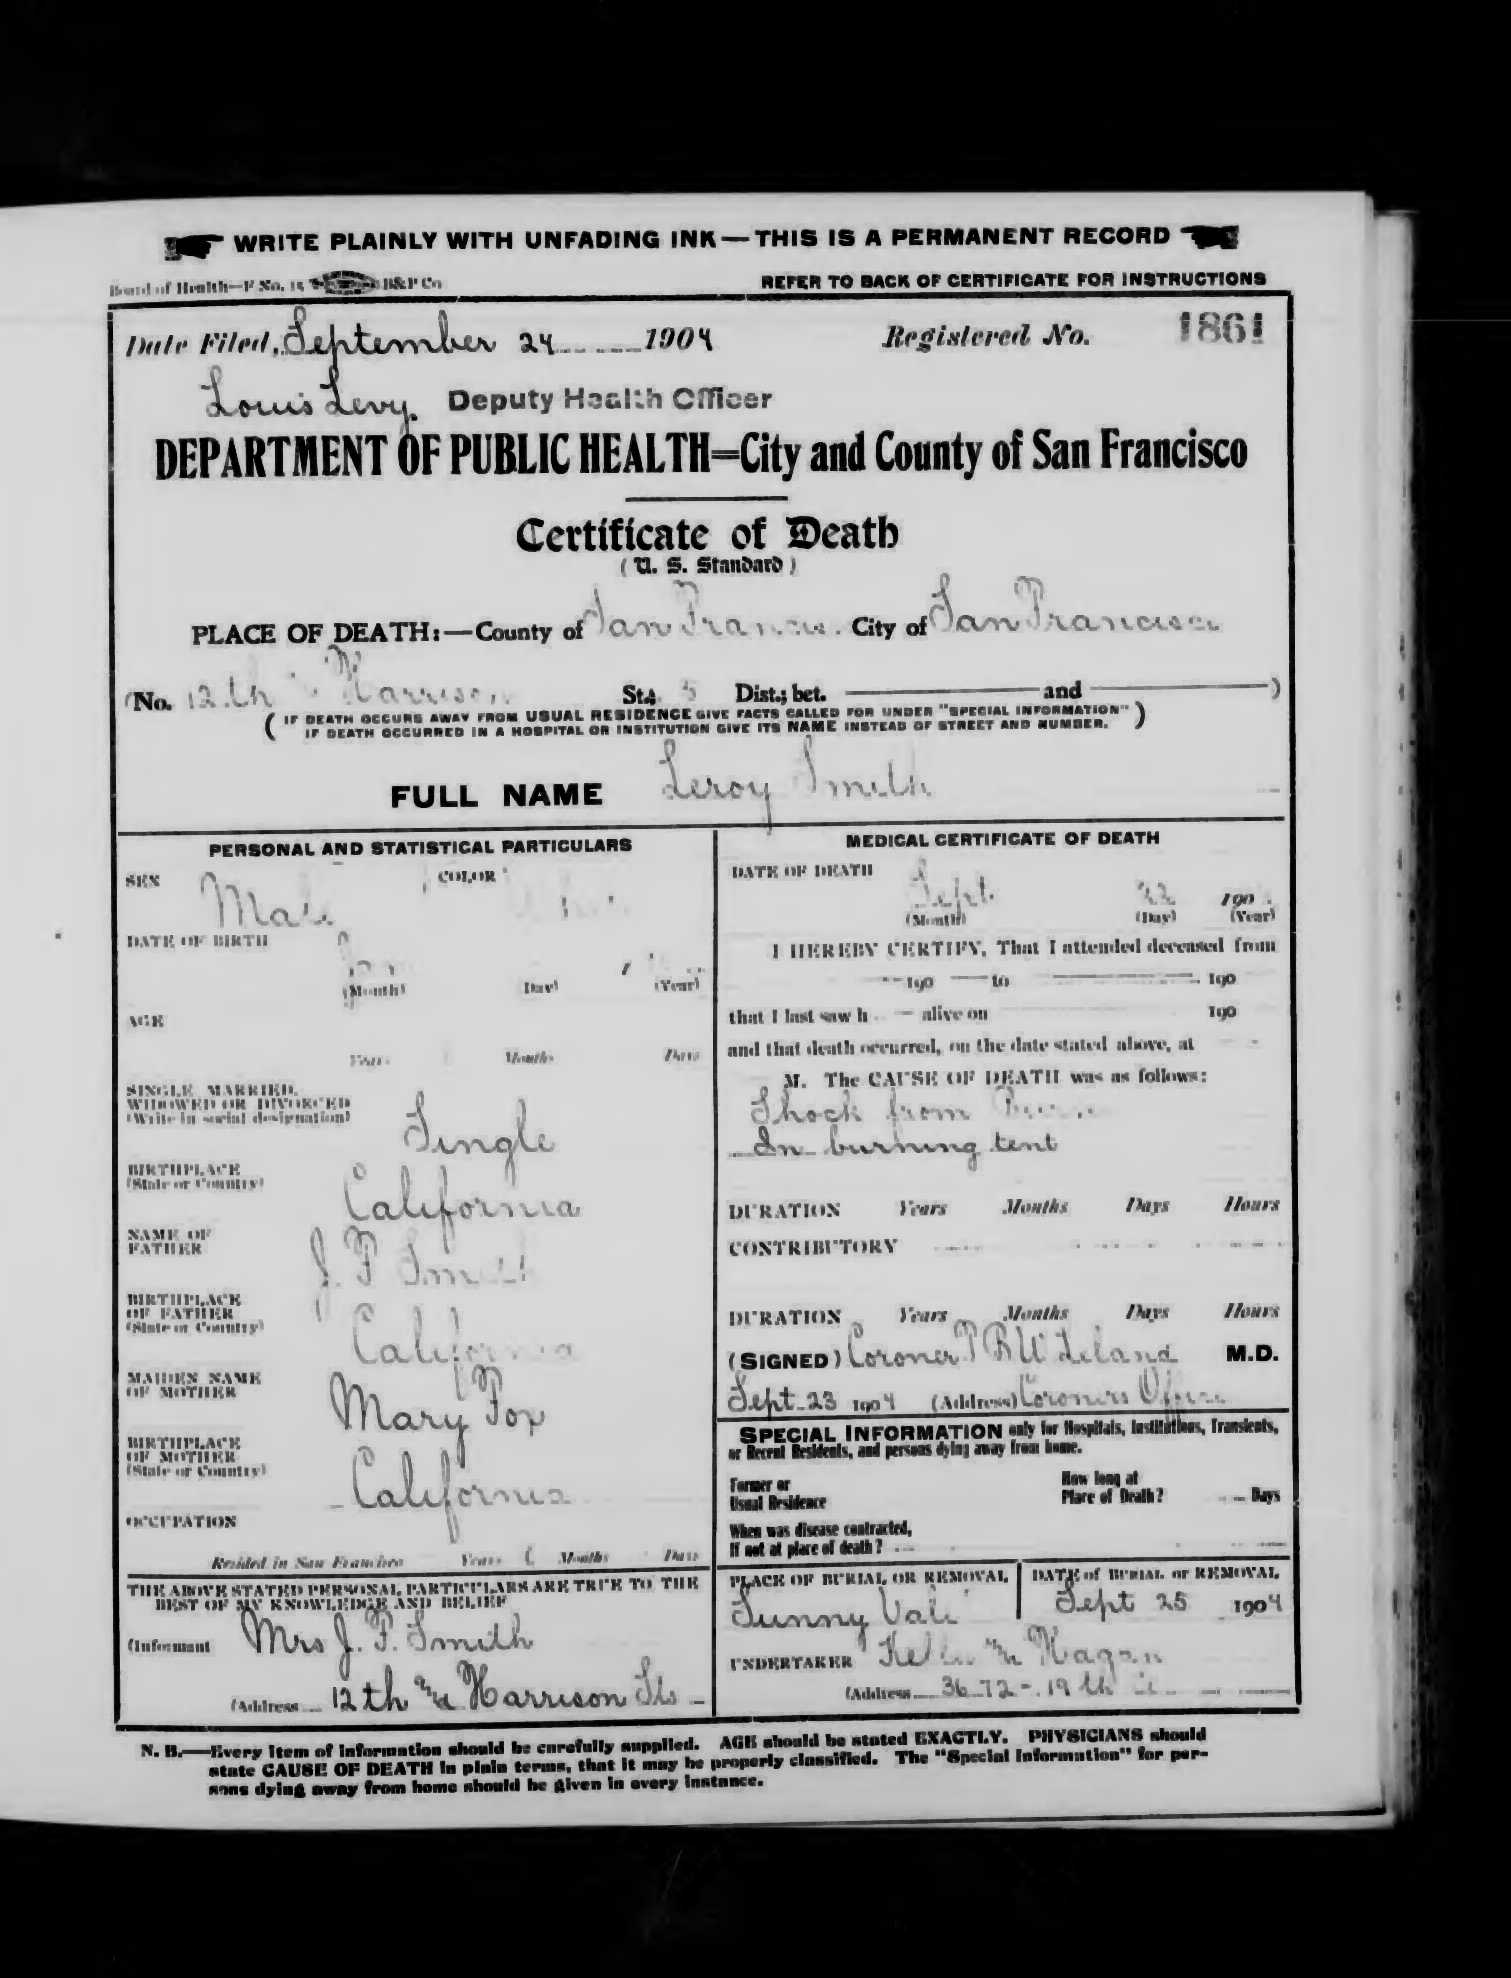 WRITE PLAINLY WITH UNFADING INK—THIS IS A PERMANENT RECORD
Board of Health—F No. 15 B&P Co
REFER TO BACK OF CERTIFICATE FOR INSTRUCTIONS
Date Filed, September 24 1904 Registered No. 1861
Louis Levy. Deputy Health Officer
DEPARTMENT OF PUBLIC HEALTH=City and County of San Francisco
Certificate of Death
(U. S. Standard)
PLACE OF DEATH:—County of San Francis City of San Francisco
(No. 12th Harrison St.; 5 Dist.; bet. and )
(IF DEATH OCCURS AWAY FROM USUAL RESIDENCE GIVE FACTS CALLED FOR UNDER "SPECIAL INFORMATION"
IF DEATH OCCURRED IN A HOSPITAL OR INSTITUTION GIVE ITS NAME INSTEAD OF STREET AND NUMBER.)
FULL NAME Leroy Smith
PERSONAL AND STATISTICAL PARTICULARS
SEX Male COLOR
DATE OF BIRTH
(Month) (Day) (Year)
AGE
Years Months Days
SINGLE, MARRIED,
WIDOWED OR DIVORCED
(Write in social designation) Single
BIRTHPLACE
(State or Country) California
NAME OF
FATHER J. P. Smith
BIRTHPLACE
OF FATHER
(State or Country) California
MAIDEN NAME
OF MOTHER Mary Fox
BIRTHPLACE
OF MOTHER
(State or Country) California
OCCUPATION
Resided in San Francisco Years Months Days
THE ABOVE STATED PERSONAL PARTICULARS ARE TRUE TO THE
BEST OF MY KNOWLEDGE AND BELIEF
(Informant Mrs J. P. Smith
(Address 12th & Harrison Sts
MEDICAL CERTIFICATE OF DEATH
DATE OF DEATH
Sept. 22 190
(Month) (Day) (Year)
I HEREBY CERTIFY, That I attended deceased from
190 to 190
that I last saw h alive on 190
and that death occurred, on the date stated above, at
M. The CAUSE OF DEATH was as follows:
Shock from
In burning tent
DURATION Years Months Days Hours
CONTRIBUTORY
DURATION Years Months Days Hours
(SIGNED) Coroner T B W Leland M.D.
Sept. 23 1904 (Address) Coroners Office
SPECIAL INFORMATION only for Hospitals, Institutions, Transients,
or Recent Residents, and persons dying away from home.
Former or
Usual Residence
How long at
Place of Death? Days
When was disease contracted,
If not at place of death?
PLACE OF BURIAL OR REMOVAL DATE of BURIAL or REMOVAL
Sunny Vale Sept 25 1904
UNDERTAKER & Hagan
(Address 3672 - 19th
N. B.—Every item of information should be carefully supplied. AGE should be stated EXACTLY. PHYSICIANS should
state CAUSE OF DEATH in plain terms, that it may be properly classified. The "Special Information" for per-
sons dying away from home should be given in every instance.